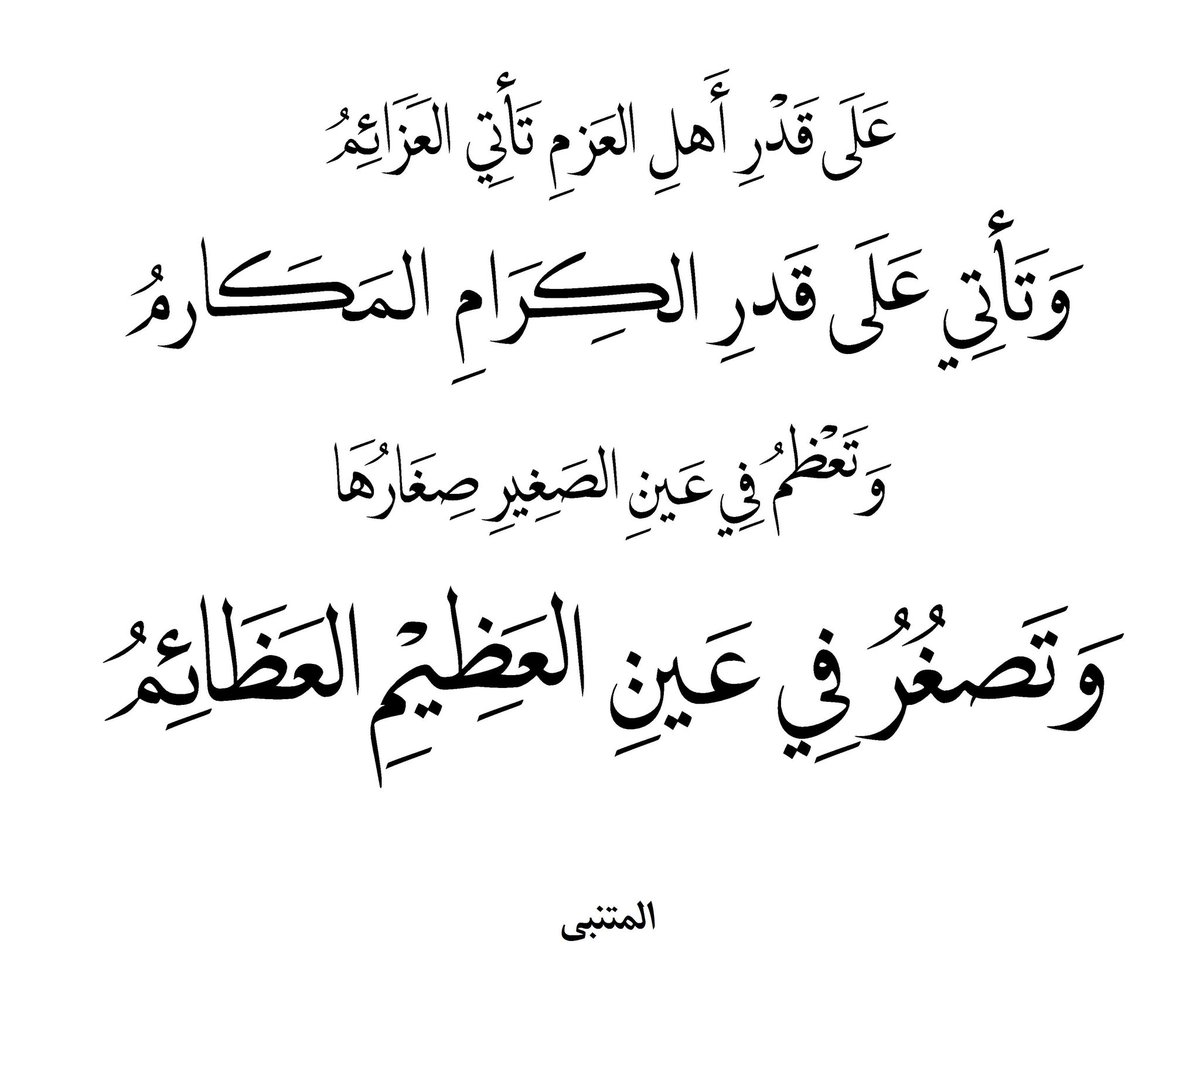 عَلَى قَدْرِ أَهلِ العَزمِ تَأتِي العَزَائِمُ
وَتَأتِي عَلَى قَدرِ الكِرَامِ المَكَارمُ
وَتَعْظمُ فِي عَينِ الصَغِيرِ صِغَارُهَا
وَتَصغُرُ فِي عَينِ العَظِيْمِ العَظَائِمُ
المتنبى